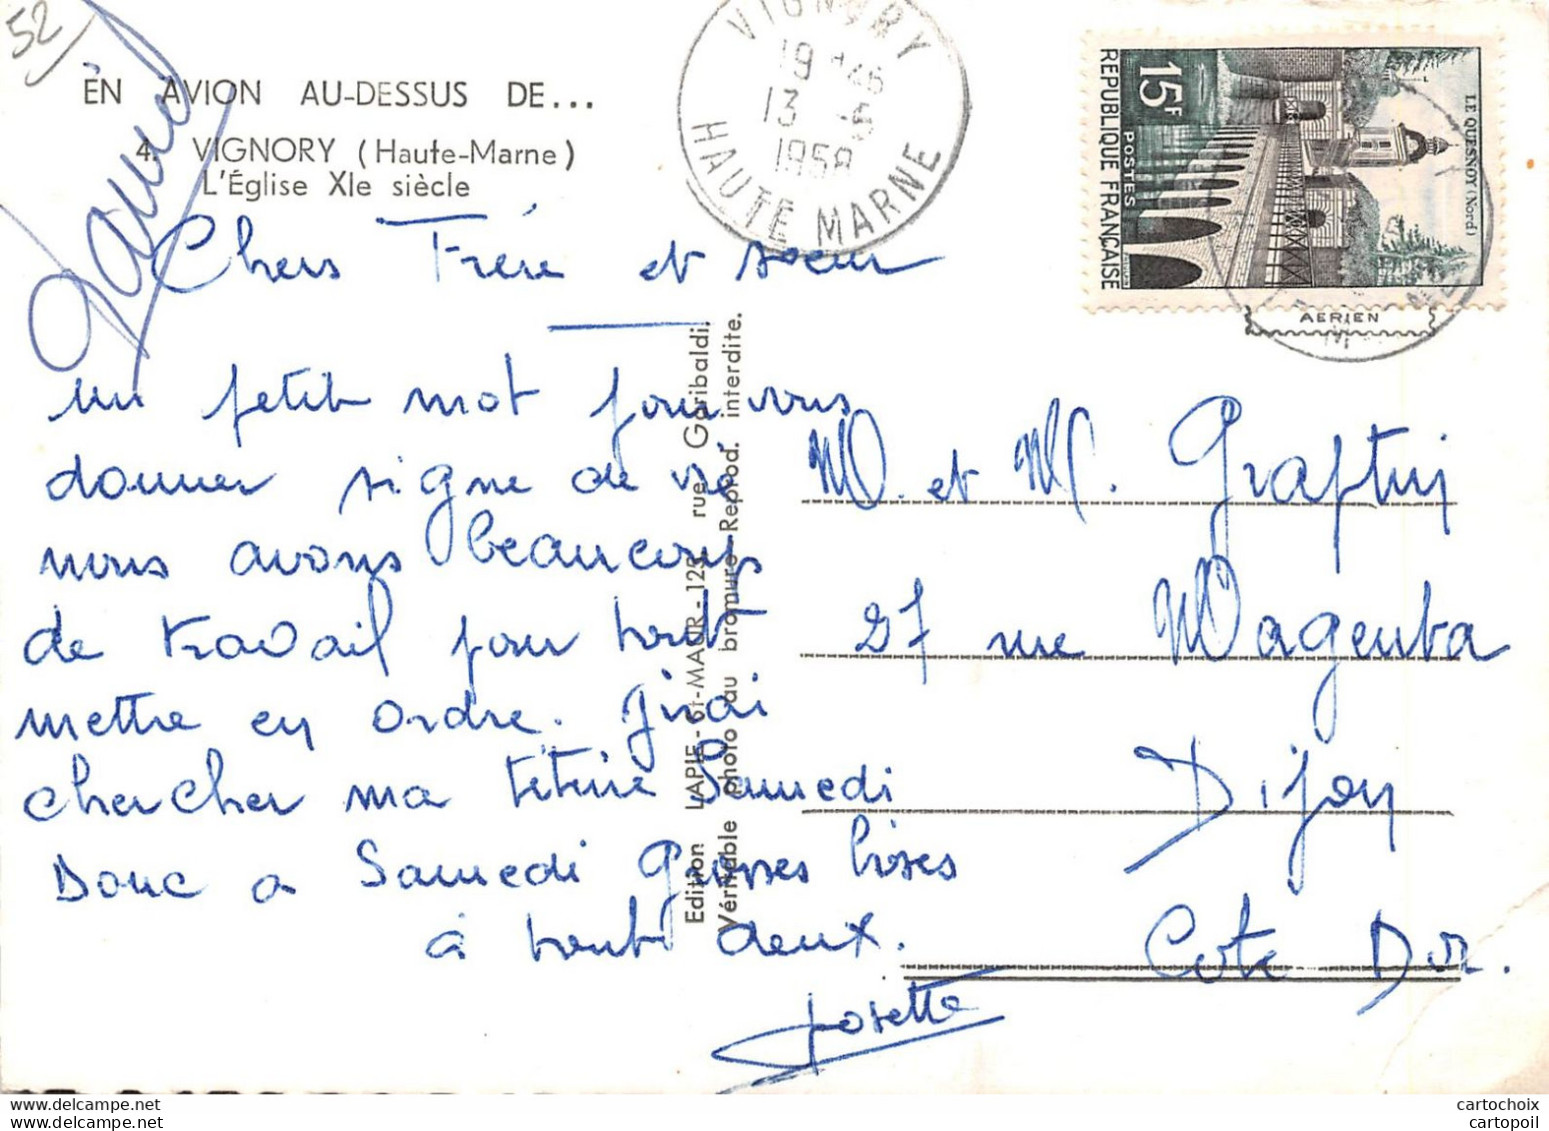 52
EN AVION AU-DESSUS DE...
4. VIGNORY (Haute-Marne)
L'Église XIe siècle
VIGNORY
19
13 -5
1958
HAUTE MARNE
15F
POSTES
REPUBLIQUE FRANÇAISE
LE QUESNOY (Nord)
AERIEN
Chers Frére et soeur
un petit mot pour vous
donner signe de vie
nous avons beaucoup
de travail pour tout
mettre en ordre. J'irai
chercher ma Samedi
Donc a Samedi Grosses bises
à tout deux.
Josette
Edition LAPIE - St-MAUR - 125 rue Garibaldi.
Véritable photo au bromure Reprod. interdite.
M. et M.
27 rue Magenta
Dijon
Cote Dor.
www.delcampe.net
cartochoix
www.delcampe.net
cartopoil